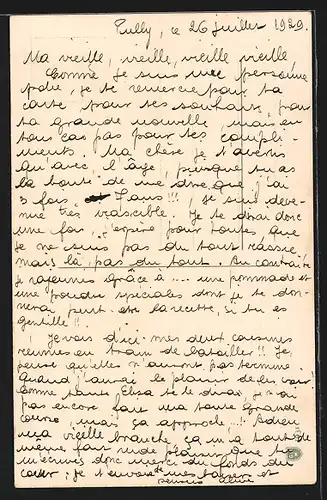 Pully, ce 26 juillet 1929.
Ma vieille, vieille, vieille vieille
Comme je suis une personne
polie, je te remercie pour ta
carte pour tes souhaits, pour
ta grande nouvelle, mais en
tous cas pas pour tes compli-
ments. Ma chère je t'avertis
qu'avec l'âge, puisque tu as
la bonté de me dire que j'ai
3 fois 7 ans!!!, je suis deve-
nue très irascible. Je te dirai donc
une fois, j'espère pour toutes que
je ne suis pas du tout rassie,
mais là, pas du tout. Au contraire
je rajeunis grâce à .... une pommade et
une poudre spéciales dont je te don-
nerai peut-être la recette, si tu es
gentille!!
Je vois d'ici mes deux cousines
réunies en train de batailler!! Je
pense qu'elles n'auront pas terminé
quand j'aurai le plaisir de les voir.
Comme tante Elisa te le dirai, je n'ai
pas encore fait ma toute grande
course, mais ça approche..! Adieu
ma vieille branche ça m'a tout de
même fait rude plaisir que tu
m'écrives donc merci du fonds du
cœur, je t'envoie de mes baisers et